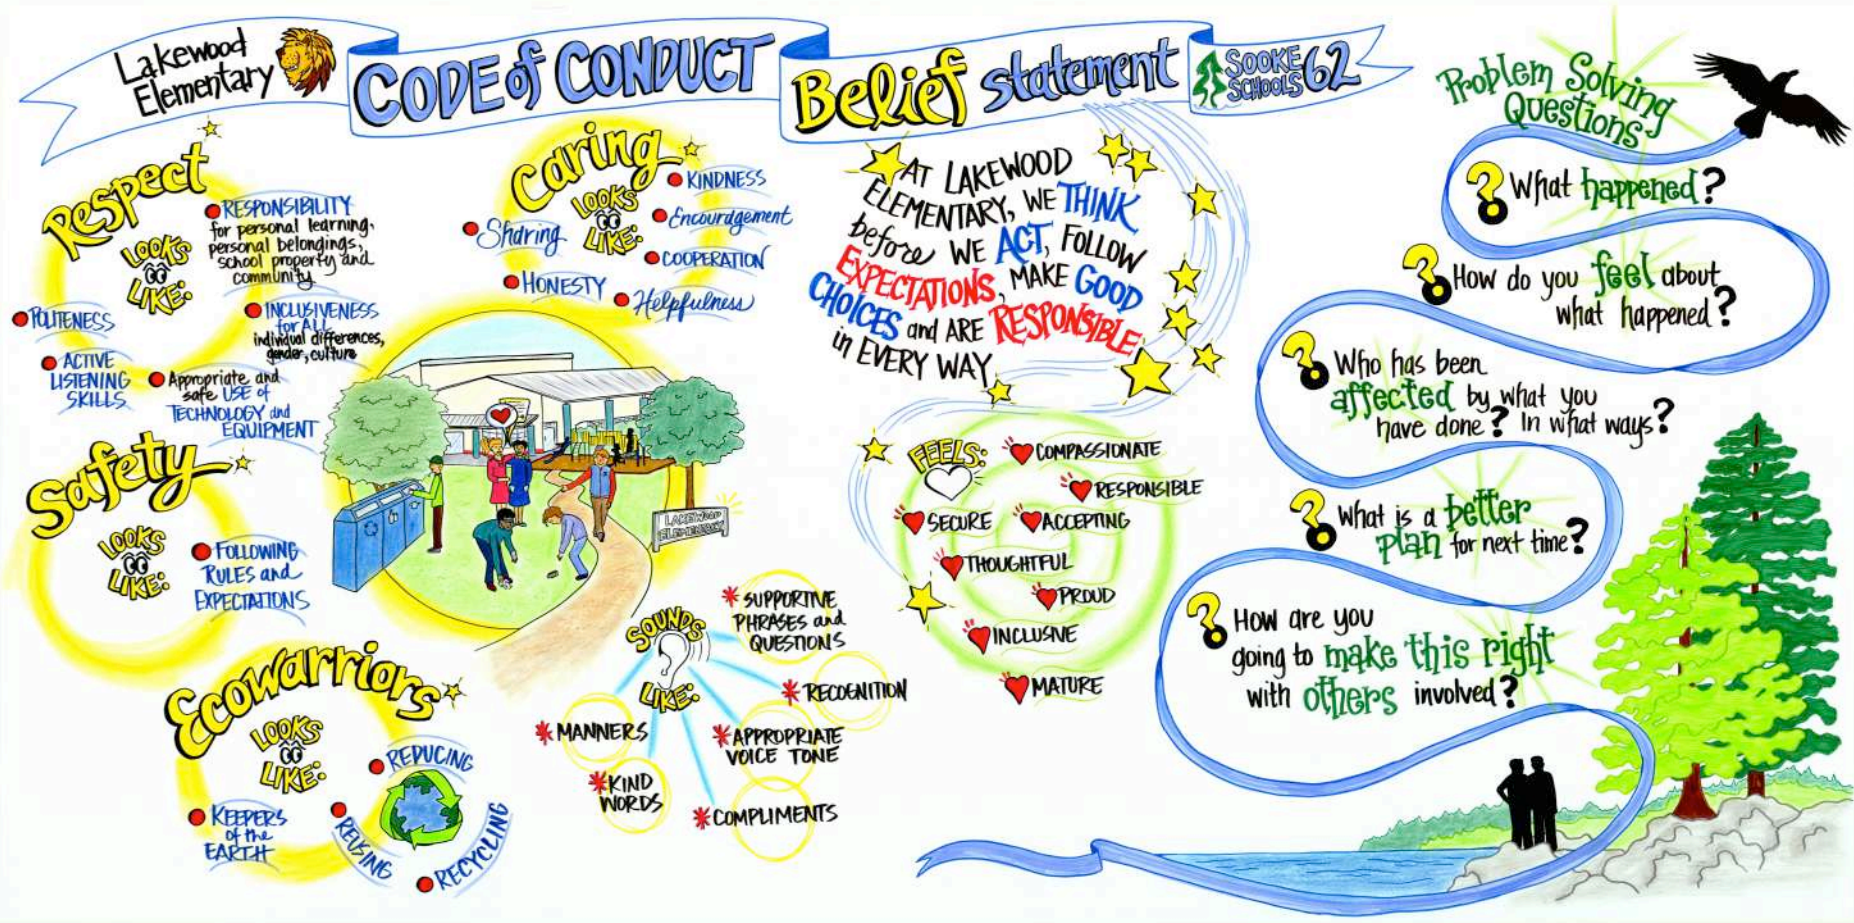 Lakewood
Elementary
CODE of CONDUCT
Belief statement
SOOKE
SCHOOLS 62
Respect
LOOKS
LIKE:
RESPONSIBILITY
for personal learning,
personal belongings,
school property and
community.
POLITENESS
INCLUSIVENESS
for ALL
individual differences,
gender, culture
ACTIVE
LISTENING
SKILLS
Appropriate and
safe USE of
TECHNOLOGY and
EQUIPMENT
Caring
LOOKS
LIKE:
KINDNESS
Encouragement
Sharing
COOPERATION
HONESTY
Helpfulness
Safety
LOOKS
LIKE:
FOLLOWING
RULES and
EXPECTATIONS
Ecowarriors
LOOKS
LIKE:
REDUCING
KEEPERS
of the
EARTH
REUSING
RECYCLING
LAKEWOOD
ELEMENTARY
SOUNDS
LIKE:
SUPPORTIVE
PHRASES and
QUESTIONS
RECOGNITION
MANNERS
APPROPRIATE
VOICE TONE
KIND
WORDS
COMPLIMENTS
AT LAKEWOOD
ELEMENTARY, WE THINK
before WE ACT, FOLLOW
EXPECTATIONS, MAKE GOOD
CHOICES and ARE RESPONSIBLE
in EVERY WAY.
FEELS:
COMPASSIONATE
RESPONSIBLE
SECURE
ACCEPTING
THOUGHTFUL
PROUD
INCLUSIVE
MATURE
Problem Solving
Questions
? What happened?
? How do you feel about
what happened?
? Who has been
affected by what you
have done? In what ways?
? What is a better
plan for next time?
? How are you
going to make this right
with others involved?